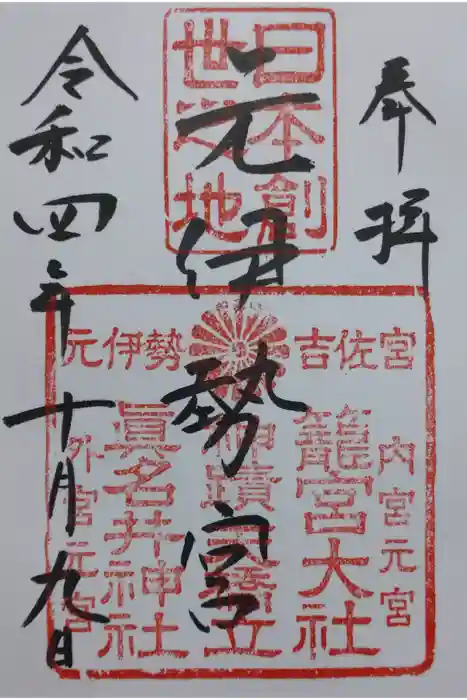 奉拝
日本創
世之地
元伊勢宮
令和四年十月九日
元伊勢 吉佐宮
内宮元宮
籠宮大社
神蹟天橋立
眞名井神社
外宮元宮